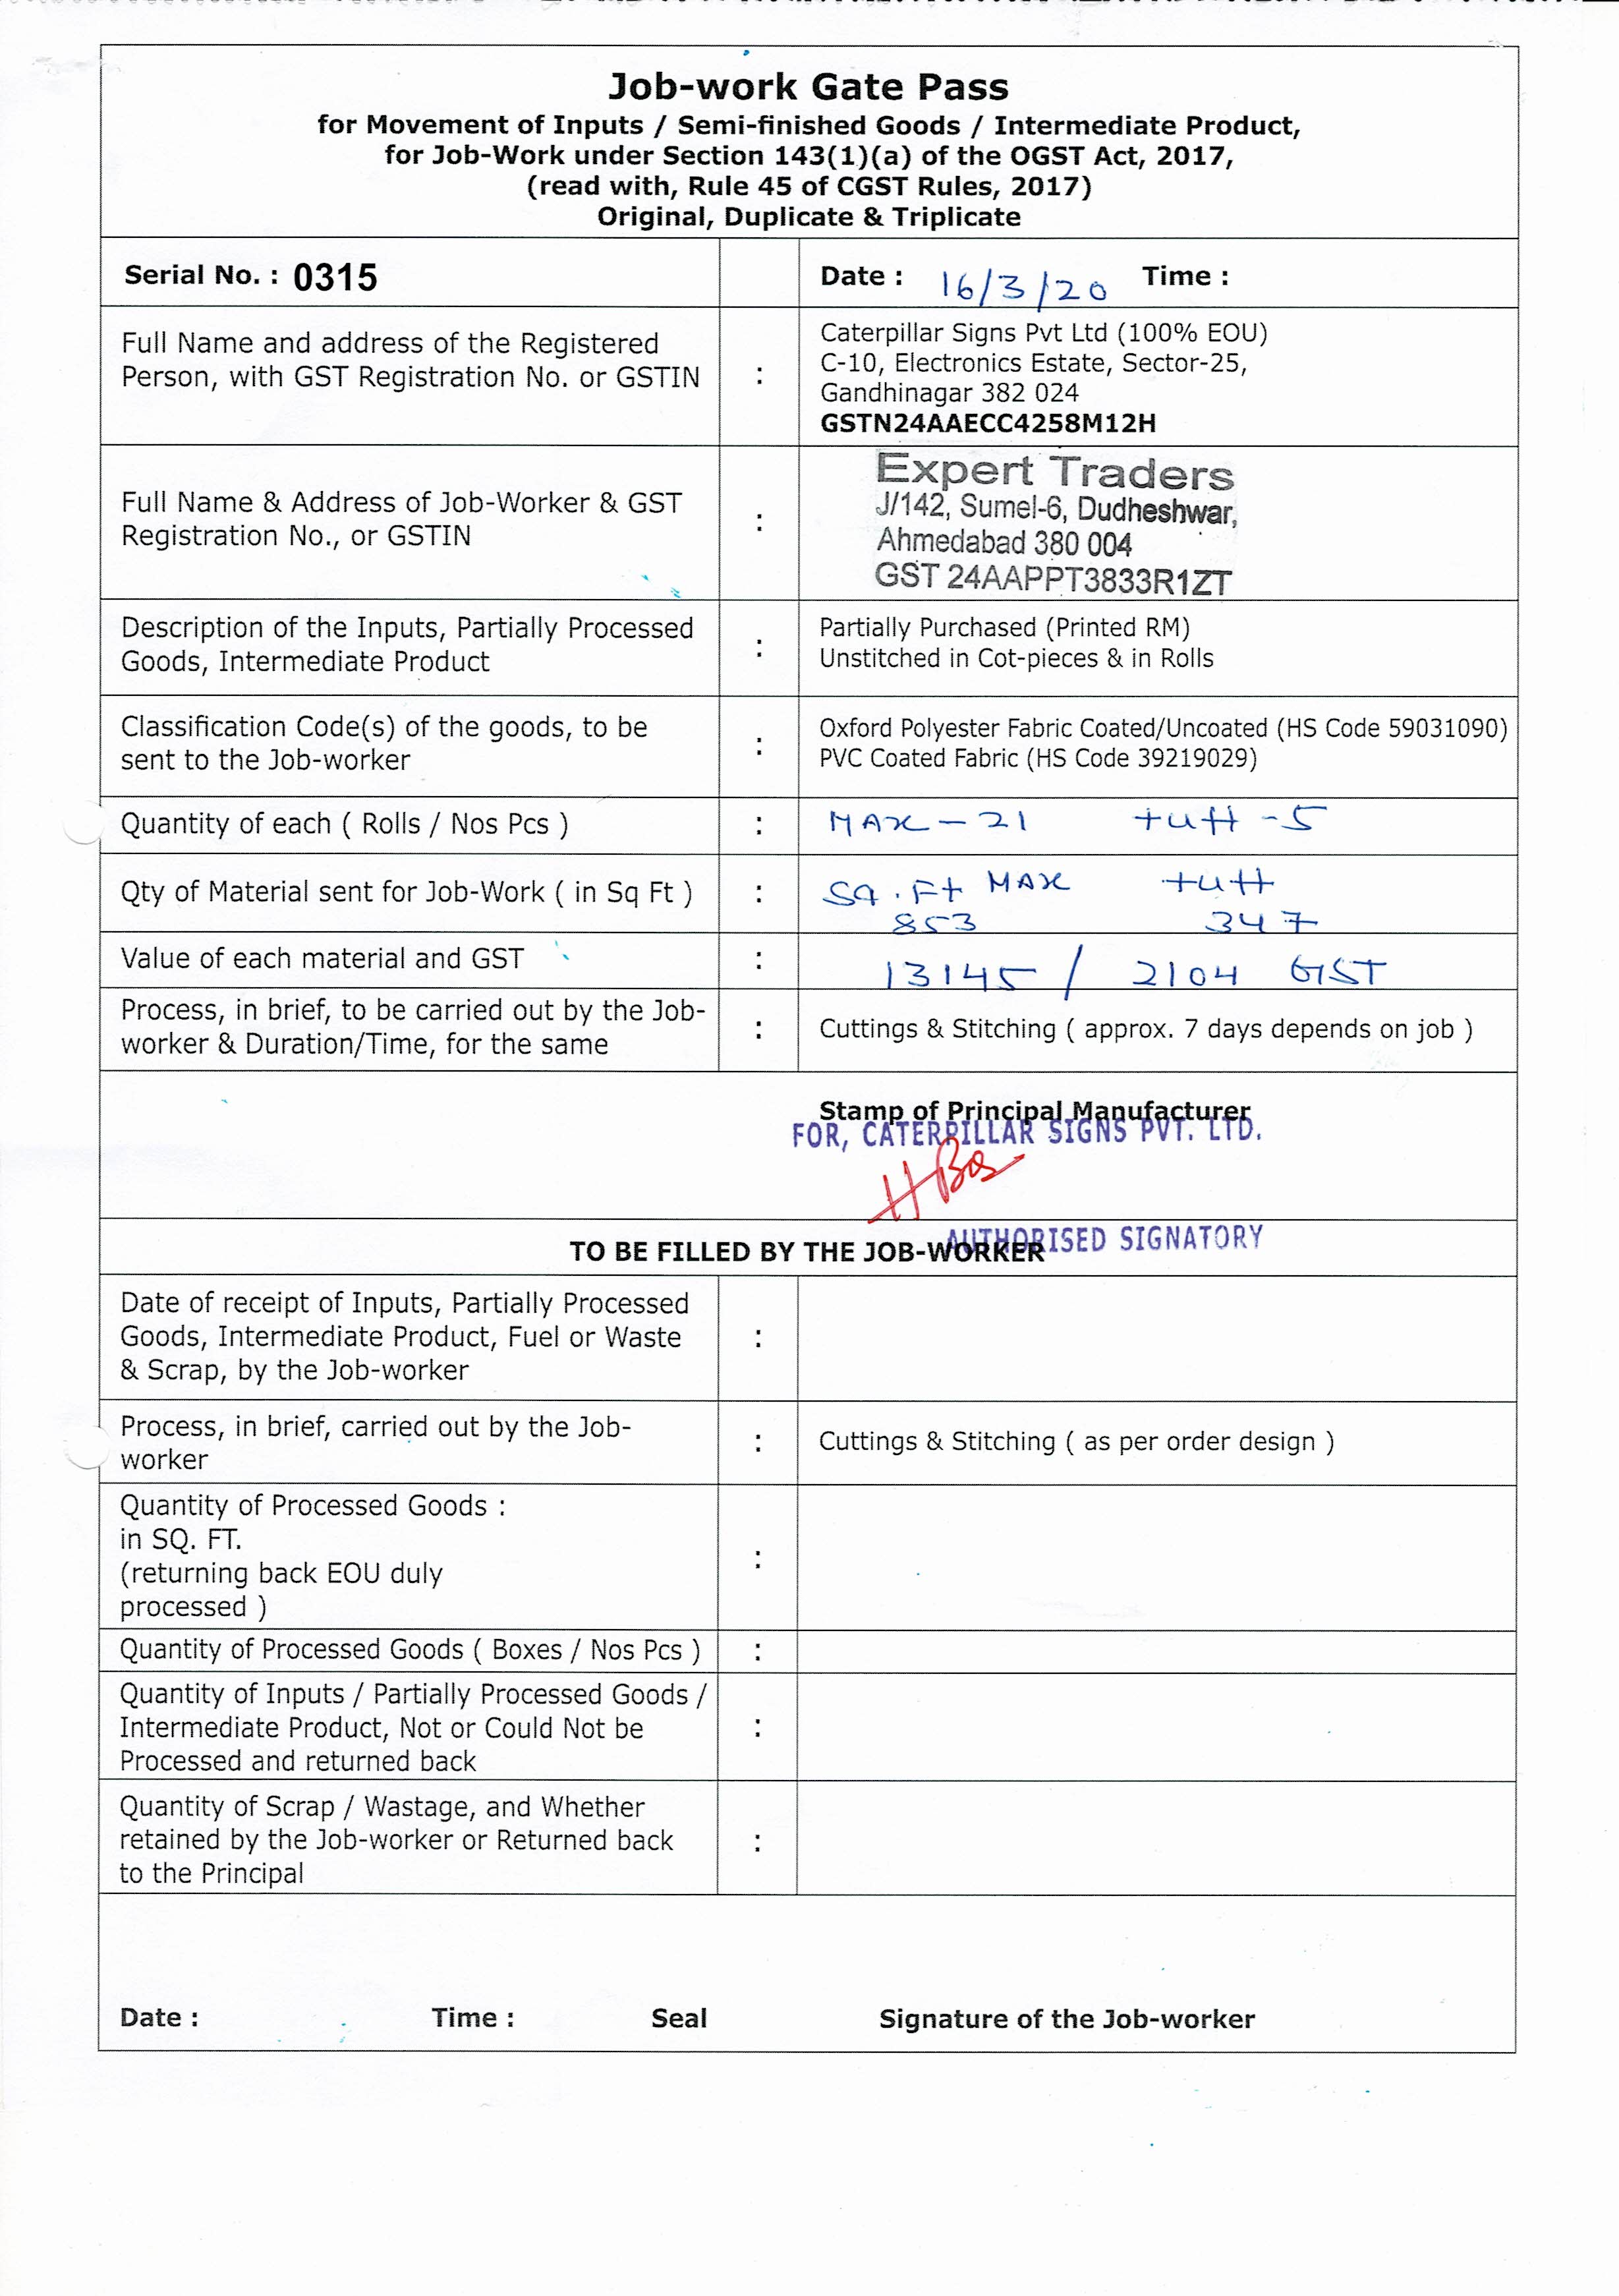 Job-work Gate Pass
for Movement of Inputs / Semi-finished Goods / Intermediate Product,
for Job-Work under Section 143(1)(a) of the OGST Act, 2017,
(read with, Rule 45 of CGST Rules, 2017)
Original, Duplicate & Triplicate
Serial No. : 0315
Date : 16/3/20 Time :
Full Name and address of the Registered
Person, with GST Registration No. or GSTIN
:
Caterpillar Signs Pvt Ltd (100% EOU)
C-10, Electronics Estate, Sector-25,
Gandhinagar 382 024
GSTN24AAECC4258M12H
Full Name & Address of Job-Worker & GST
Registration No., or GSTIN
:
Expert Traders
J/142, Sumel-6, Dudheshwar,
Ahmedabad 380 004
GST 24AAPPT3833R1ZT
Description of the Inputs, Partially Processed
Goods, Intermediate Product
:
Partially Purchased (Printed RM)
Unstitched in Cot-pieces & in Rolls
Classification Code(s) of the goods, to be
sent to the Job-worker
:
Oxford Polyester Fabric Coated/Uncoated (HS Code 59031090)
PVC Coated Fabric (HS Code 39219029)
Quantity of each ( Rolls / Nos Pcs )
:
MAX - 21 tuff - 5
Qty of Material sent for Job-Work ( in Sq Ft )
:
SQ.Ft MAX tuff
853 347
Value of each material and GST
:
13145 / 2104 GST
Process, in brief, to be carried out by the Job-
worker & Duration/Time, for the same
:
Cuttings & Stitching ( approx. 7 days depends on job )
Stamp of Principal Manufacturer
FOR, CATERPILLAR SIGNS PVT. LTD.
AUTHORISED SIGNATORY
TO BE FILLED BY THE JOB-WORKER
Date of receipt of Inputs, Partially Processed
Goods, Intermediate Product, Fuel or Waste
& Scrap, by the Job-worker
:
Process, in brief, carried out by the Job-
worker
:
Cuttings & Stitching ( as per order design )
Quantity of Processed Goods :
in SQ. FT.
(returning back EOU duly
processed )
:
Quantity of Processed Goods ( Boxes / Nos Pcs )
:
Quantity of Inputs / Partially Processed Goods /
Intermediate Product, Not or Could Not be
Processed and returned back
:
Quantity of Scrap / Wastage, and Whether
retained by the Job-worker or Returned back
to the Principal
:
Date : Time : Seal Signature of the Job-worker